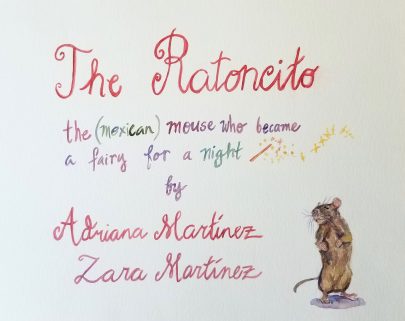 The Ratoncito
the (mexican) mouse who became
a fairy for a night
by
Adriana Martínez
Zara Martínez